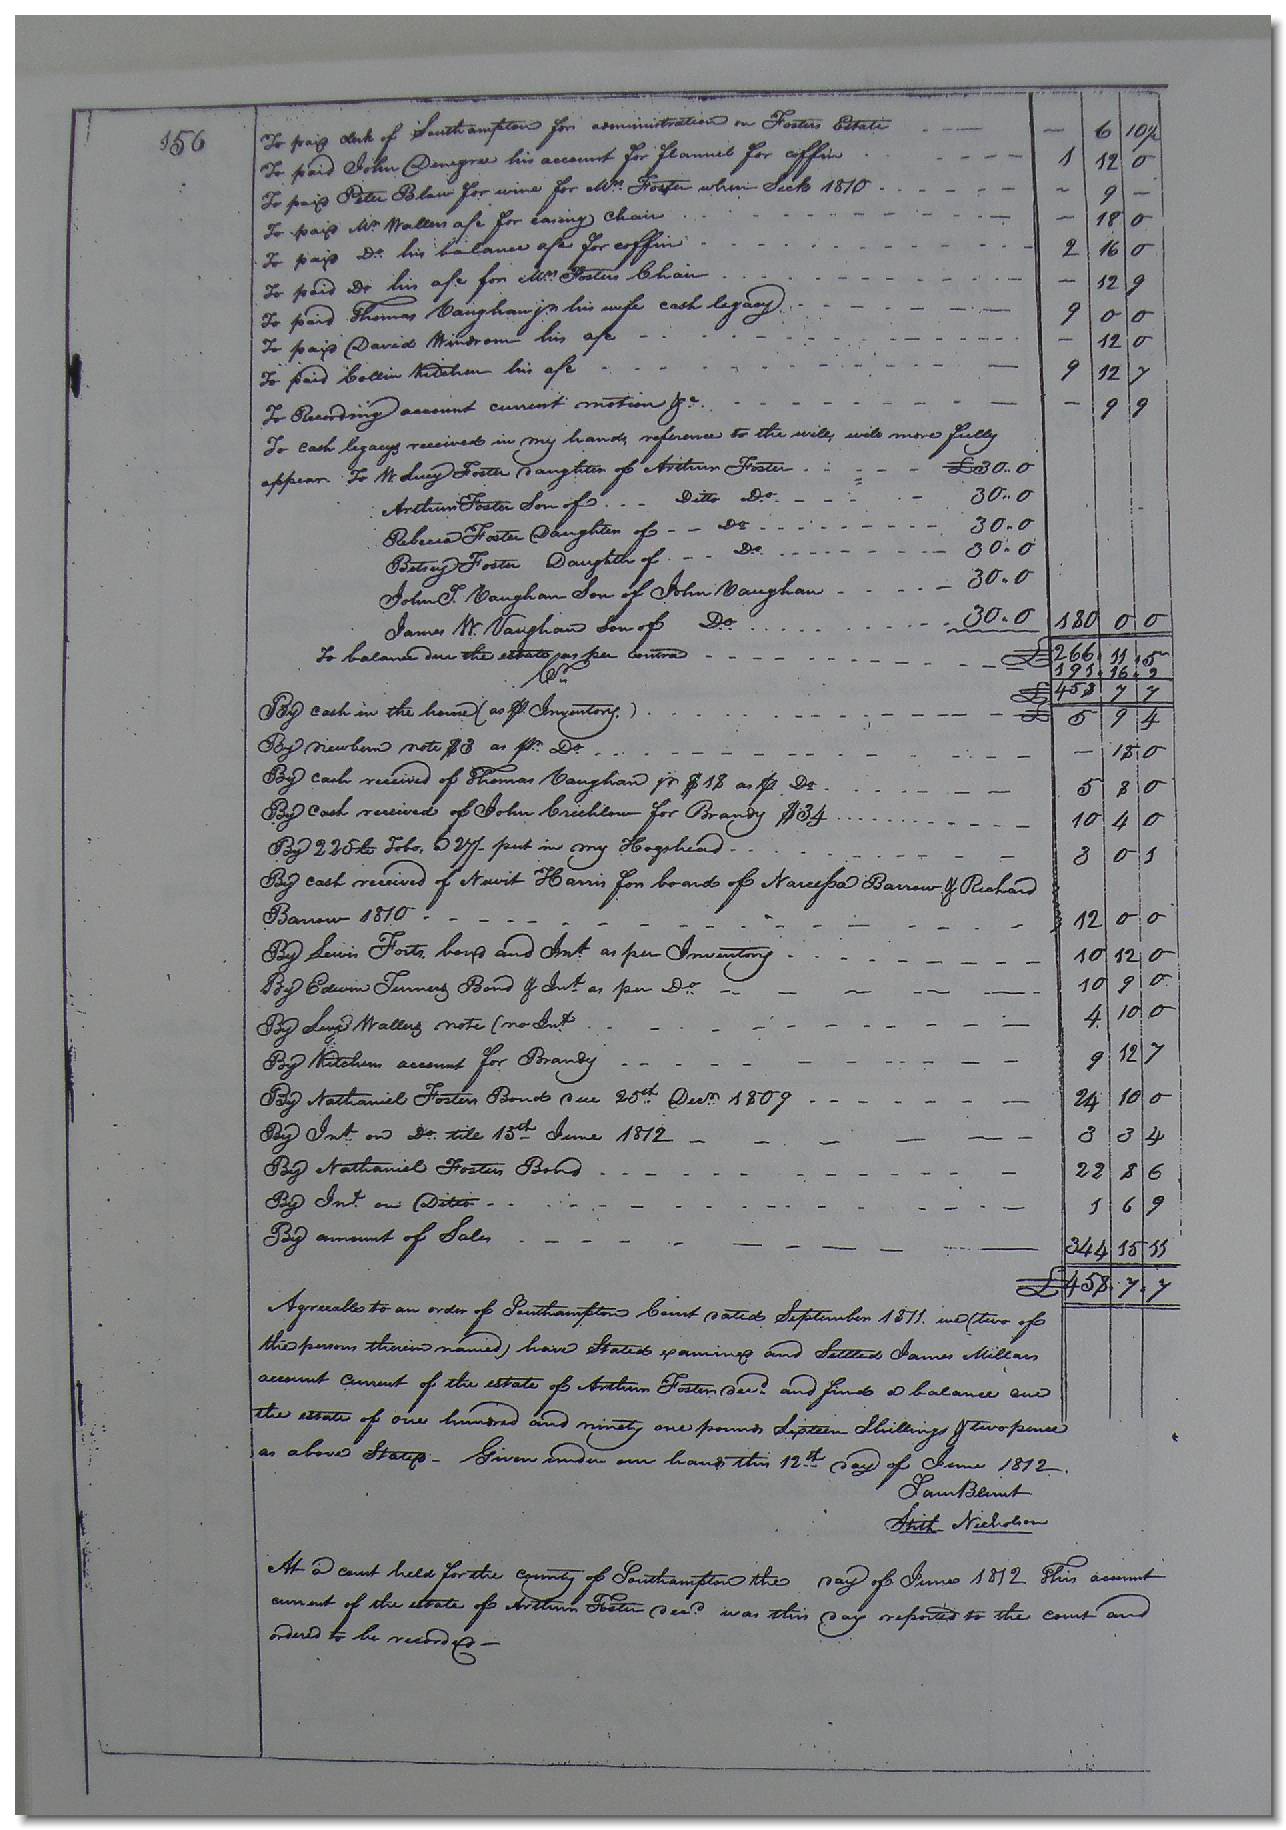 156
To paid clerk of Southampton for administration on Fosters Estate - 6 10½
To paid John Denegre his account for flannel for coffin 1 12 0
To paid Peter Blow for wine for Mrs Foster when Sick 1810 - 9 -
To paid Mr Wallers a/c for easing chair - 18 0
To paid Do his balance a/c for coffin 2 16 0
To paid Do his a/c for Mrs Fosters Chair - 12 9
To paid Thomas Vaughan jr his wife cash legacy 9 0 0
To paid David Windrom his a/c - 12 0
To paid Collin Kitchen his a/c 9 12 7
To Recording account current motion &c - 9 9
To cash legacys received in my hands reference to the wills will more fully
appear To W Lucy Foster daughter of Arthur Foster £30.0
Arthur Foster Son of Ditto Do 30.0
Rebecca Foster Daughter of Do 30.0
Betsey Foster Daughter of Do 30.0
John T. Vaughan Son of John Vaughan 30.0
James W. Vaughan Son of Do 30.0 180 0 0
£266.11.5
To balance due the estate as per contra 191.16.2
£458 7 7
Cr
By cash in the house (as pr Inventory.) £ 5 9 4
By Newbern note $3 as pr Do - 18 0
By cash received of Thomas Vaughan jr $18 as pr Do 5 8 0
By cash received of John Crichlow for Brandy $34 10 4 0
By 225 lb Tobo. a 27/- put in my Hogshead 3 0 1
By cash received of Newit Harris for board of Narcissa Barrow & Richard
Barrow 1810 12 0 0
By Lewis Forts bond and Int as per Inventory 10 12 0
By Edwin Turners Bond & Int as per Do 10 9 0
By Levy Wallers note (no Int 4 10 0
By Kitchens account for Brandy 9 12 7
By Nathaniel Fosters Bond due 25th Decr 1809 24 10 0
By Int on Do till 15th June 1812 3 3 4
By Nathaniel Fosters Bond 22 8 6
By Int on Ditto 1 6 9
By amount of Sales 344 15 11
£458.7.7
Agreeable to an order of Southampton Court dated September 1811 we (two of
the persons therein named) have Stated examined and Settled James Millars
account current of the estate of Arthur Foster decd and find a balance due
the estate of one hundred and ninety one pounds Sixteen Shillings & two pence
as above Stated - Given under our hands this 12th day of June 1812.
Sam Blunt
Stith Nicholson
At a court held for the county of Southampton the day of June 1812 This account
current of the estate of Arthur Foster decd was this day reported to the court and
ordered to be recorded -